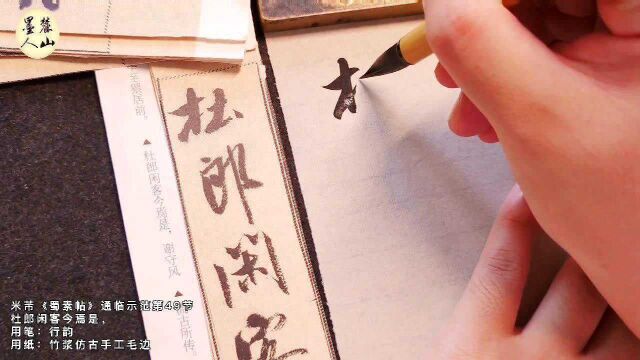 麓山
墨人
杜郎闲客
杜郎闲客今焉是，谢守风
古所传
米芾《蜀素帖》通临示范第49节
杜郎闲客今焉是，
用笔：行韵
用纸：竹浆仿古手工毛边